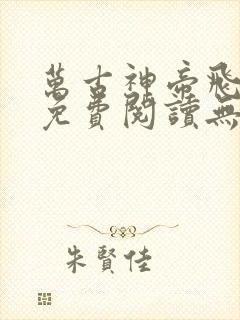 萬古神帝飛
免費閱讀無
朱賢佳